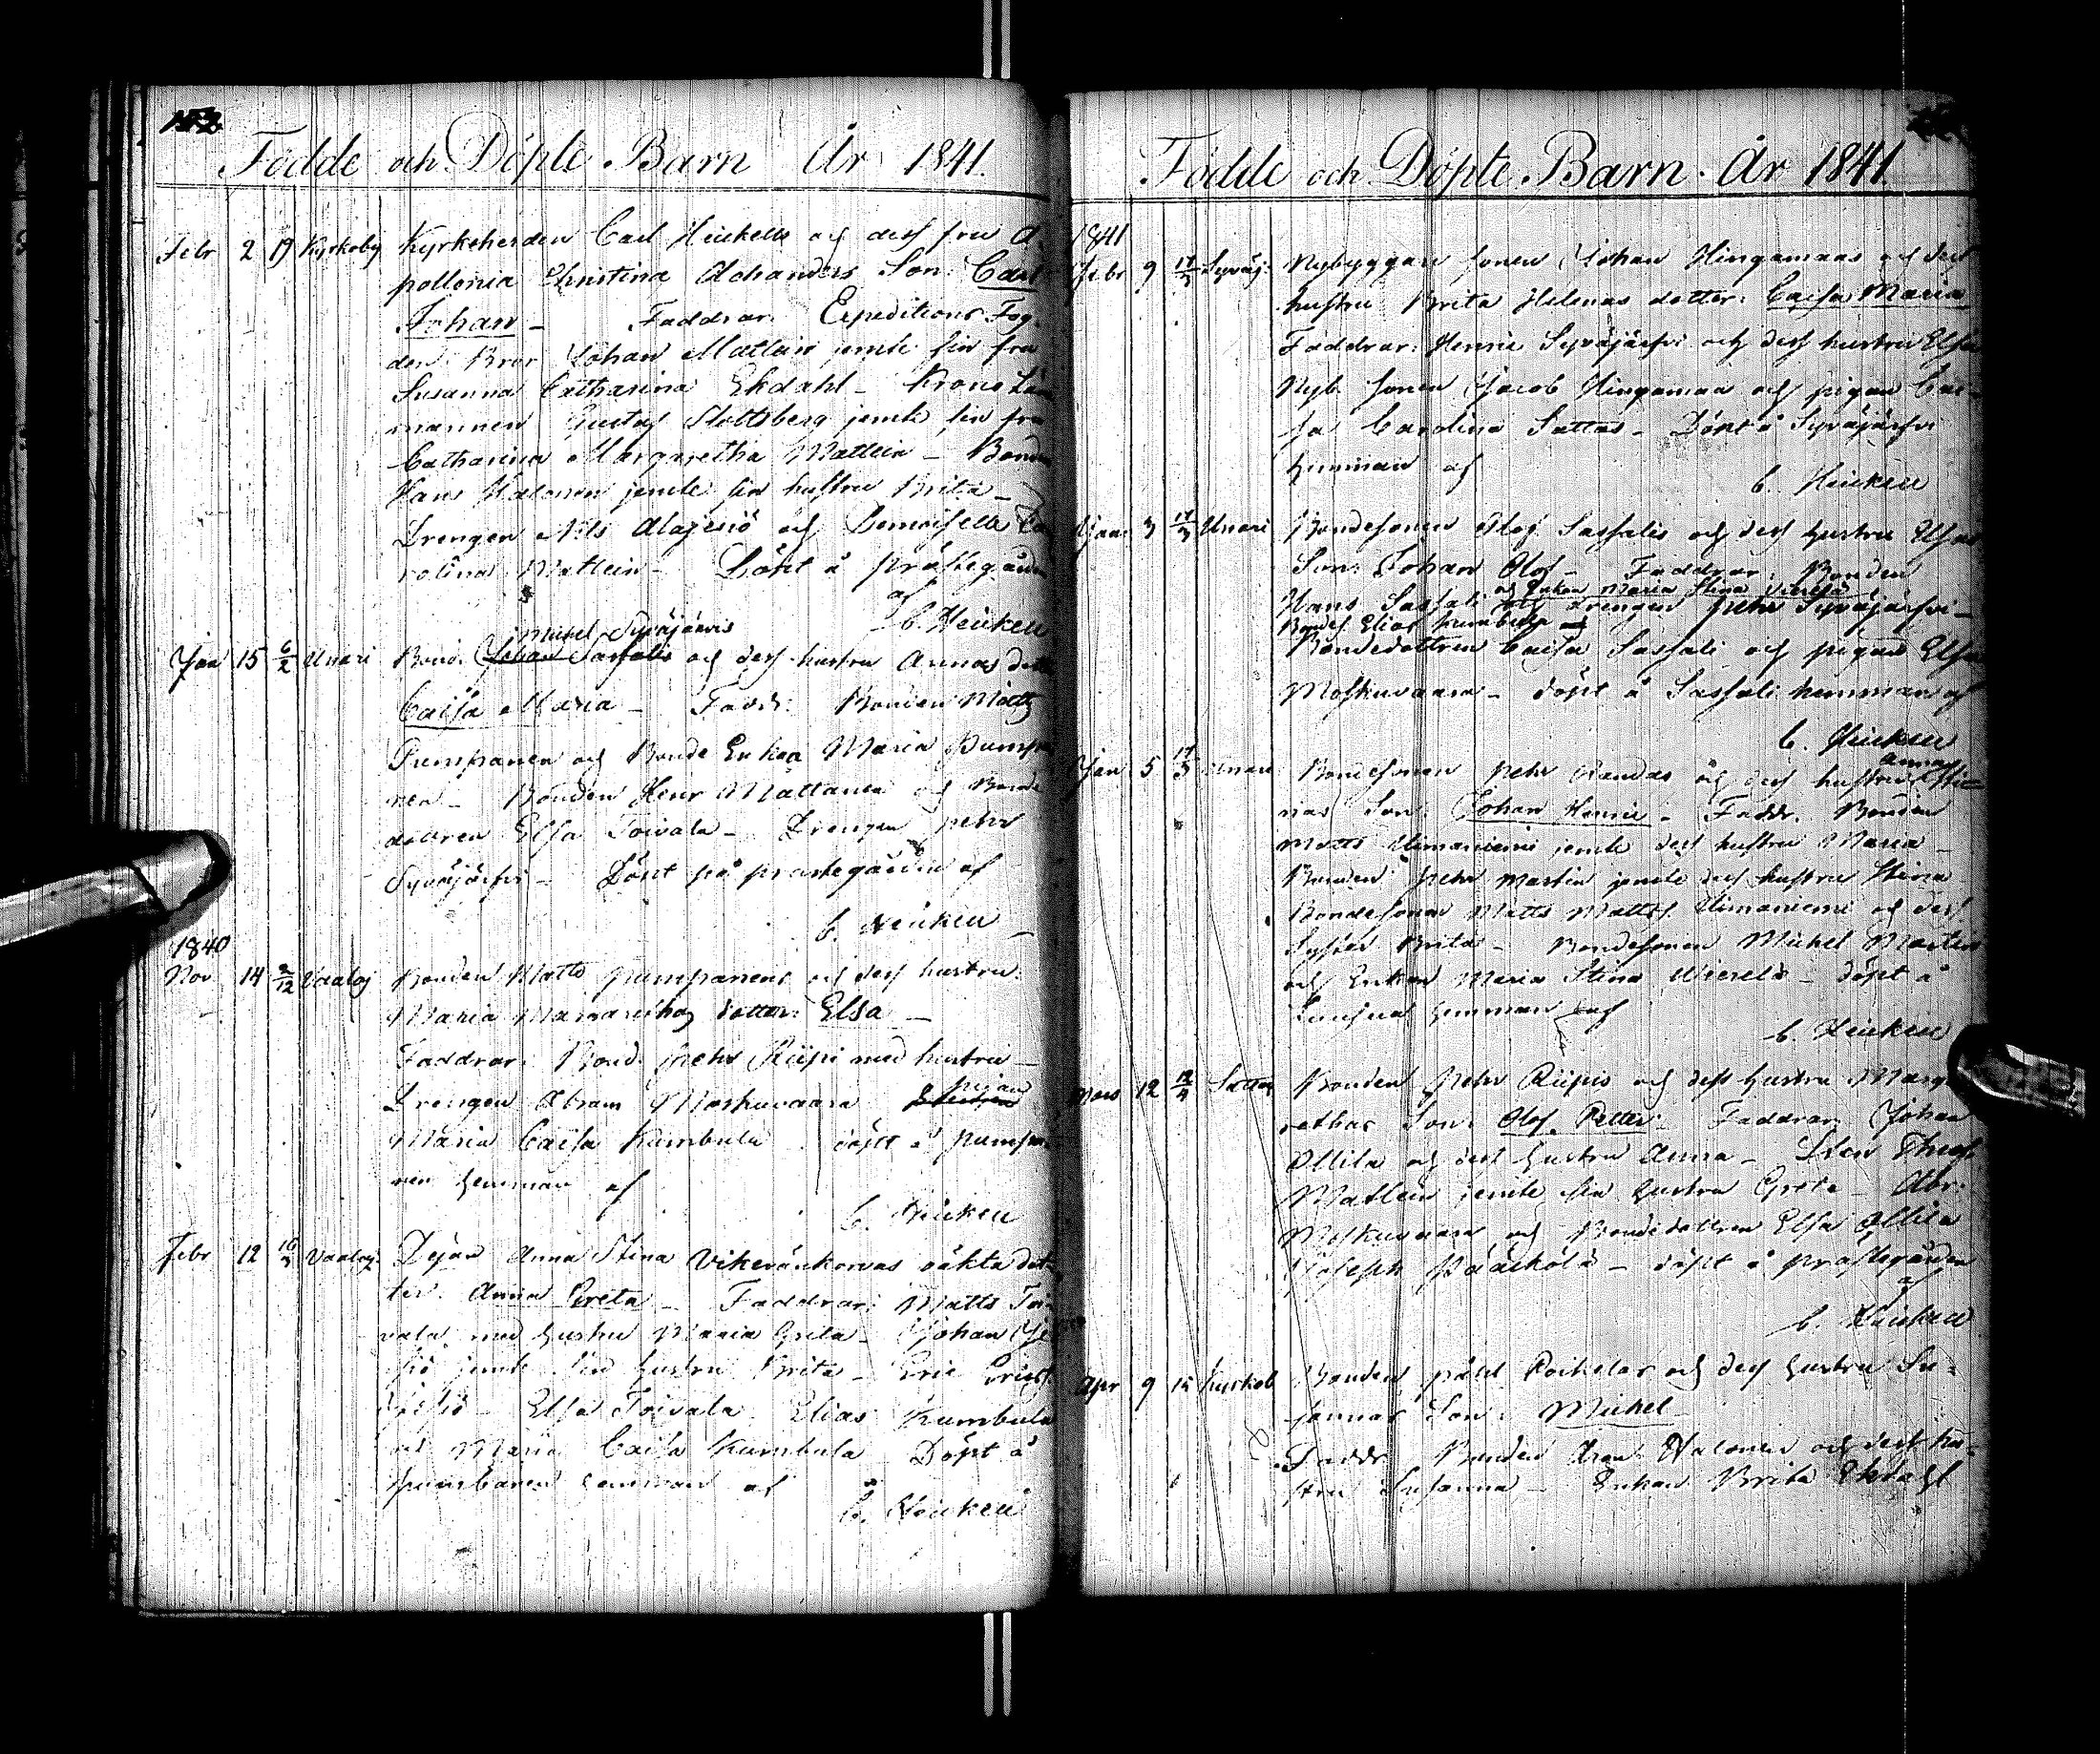 152
Födde och Döpte Barn År 1841.
Febr 2 19 Kyrkoby Kyrkoherden Carl Heickells och dess fru A-
pollonia Christina Achanders Son: Carl
Johan – Faddrar: Expeditions Fog-
den Bror Johan Matlein jemte sin fru
Susanna Catharina Ekdahl – Krono Län
mannen Gustaf Slottsberg jemte sin fru
Catharina Margaretha Matlein – Bonden
Hans Halonen jemte sin hustru Brita –
Drengen Nils Alajesiö och Demoiselle Ca
rolina Matlein – Döpt å prästegården
af
C. Heickell
Michel Syväjärvis
Jan 15 6/2 Unari Bond. Johan Sassalis och dess hustru Annas dott
Caisa Maria – Fadd: Bonden Matts
Pumpanen och Bonde Enkan Maria Pumpa
nen – Bonden Henr Mattanen och Bonde
dottren Elsa Toivala – Drengen Pehr
Syväjärfvi – Döpt på prästegården af
C. Heickell
1840
Nov 14 2/12 Vaalaj Bonden Matts Pumpanens och dess hustru
Maria Margarethas dotter: Elsa –
Faddrar: Bond. Pehr Riipi med hustru –
Drengen Abram Moskuvaara pigan
Maria Caisa Kumbula döpt å Pumpa
nen hemman af
C. Heickell
Febr 12 Vaalaj. Pigan Anna Stina Vikeväinkorvas oäkta dot-
ter: Anna Greta – Faddrar: Matts Toi-
vala med hustru Maria Greta – Johan Je
siö jemte sin hustru Brita – Eric Ericss.
Jesiö – Elsa Toivala Elias Kumbula
och Maria Caisa Kumbula Döpt å
Pumbanen hemman af
C. Heickell
Födde och Döpte Barn. År 1841.
1841
Febr 9 Syväj: Nybyggare sonen Johan Hingamaas och dess
hustru Brita Helenas dotter: Caisa Maria
Faddrar: Henric Syväjärfvi och dess hustru Elsa
Nyb. sonen Jacob Hingamaa och pigan Cai-
sa Carolina Sattas – Döpt å Syväjärfvi
hemman af
C. Heickell
Jan 3 Unari Bondesonen Olof Sassalis och dess hustru Elsas
Son: Johan Olof – Faddrar: Bonden
och Enkan Maria Stina
Hans Sassali och drengen Pehr Syväjärfvi –
Bondes. Elias Kumbula och
Bondedottren Caisa Sassali och pigan Elsa
Moskuvaara – döpt å Sassali hemman af
C. Heickell
Anna
Jan 5 Unari Bondesonen Pehr Randas och dess hustru Sti-
nas Son: Johan Henric – Fadd. Bonden
Matts Uimaniemi jemte dess hustru Maria –
Bonden Pehr Martin jemte dess hustru Stina
Bondesonen Matts Mattss. Uimaniemi och dess
Syster Brita – Bondesonen Michel Martin
och Enkan Maria Stina – döpt å
hemman af
C. Heickell
Mars 12 Sattas Bonden Pehr Riipis och dess hustru Marga
rethas Son: Olof Petter Faddrar: Johan
Ollila och dess hustru Anna –
Matlein jemte sin hustru Greta – Abr.
Moskuvaara och Bondedottren Elsa Ollila
Joseph Pääskölä – döpt å prästegården
af
C. Heickell
Apr 9 12 Kyrkob Bonden Påhl Roikolas och dess hustru Su-
sannas Son: Michel
Fadd: Bonden Aron Halonen och dess hu-
stru Susanna – Enkan Brita Ekdahl